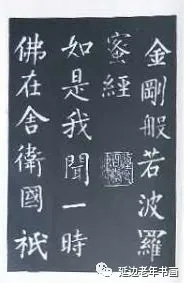 金剛般若波羅
蜜經
如是我聞一時
佛在舍衛國祇
延边老年书画